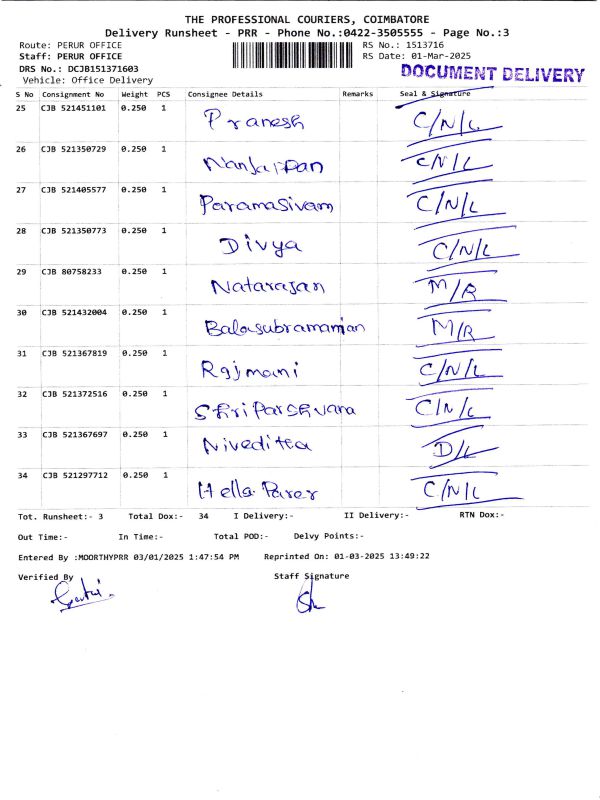 THE PROFESSIONAL COURIERS, COIMBATORE
Delivery Runsheet - PRR - Phone No.:0422-3505555 - Page No.:3
Route: PERUR OFFICE RS No.: 1513716
Staff: PERUR OFFICE RS Date: 01-Mar-2025
DRS No.: DCJB151371603 DOCUMENT DELIVERY
Vehicle: Office Delivery
S No Consignment No Weight PCS Consignee Details Remarks Seal & Signature
25 CJB 521451101 0.250 1 Pranesh C/N/L
26 CJB 521350729 0.250 1 Nanjappan C/N/L
27 CJB 521405577 0.250 1 Paramasivam C/N/L
28 CJB 521350773 0.250 1 Divya C/N/L
29 CJB 80758233 0.250 1 Natarajan M/R
30 CJB 521432004 0.250 1 Balasubramanian M/R
31 CJB 521367819 0.250 1 Rajmani C/N/L
32 CJB 521372516 0.250 1 Shri Parshvara C/N/L
33 CJB 521367697 0.250 1 Niveditta D/L
34 CJB 521297712 0.250 1 Hella Parer C/N/L
Tot. Runsheet:- 3 Total Dox:- 34 I Delivery:- II Delivery:- RTN Dox:-
Out Time:- In Time:- Total POD:- Delvy Points:-
Entered By :MOORTHYPRR 03/01/2025 1:47:54 PM Reprinted On: 01-03-2025 13:49:22
Verified By Staff Signature